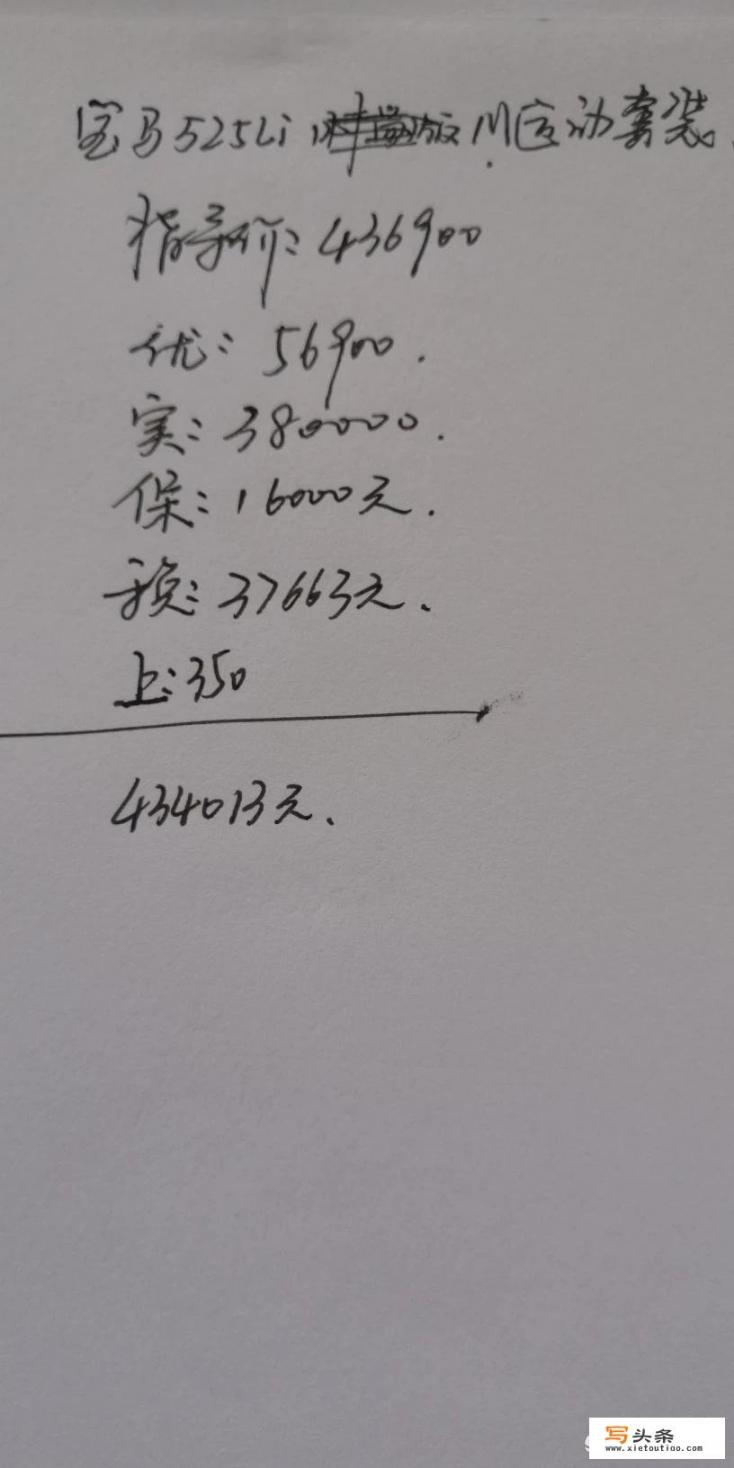 宝马525Li M运动套装.
指导价:436900
优:56900.
实:380000.
保:16000元.
预:37663元.
上:350
434013元.
写头条
www.xietoutiao.com